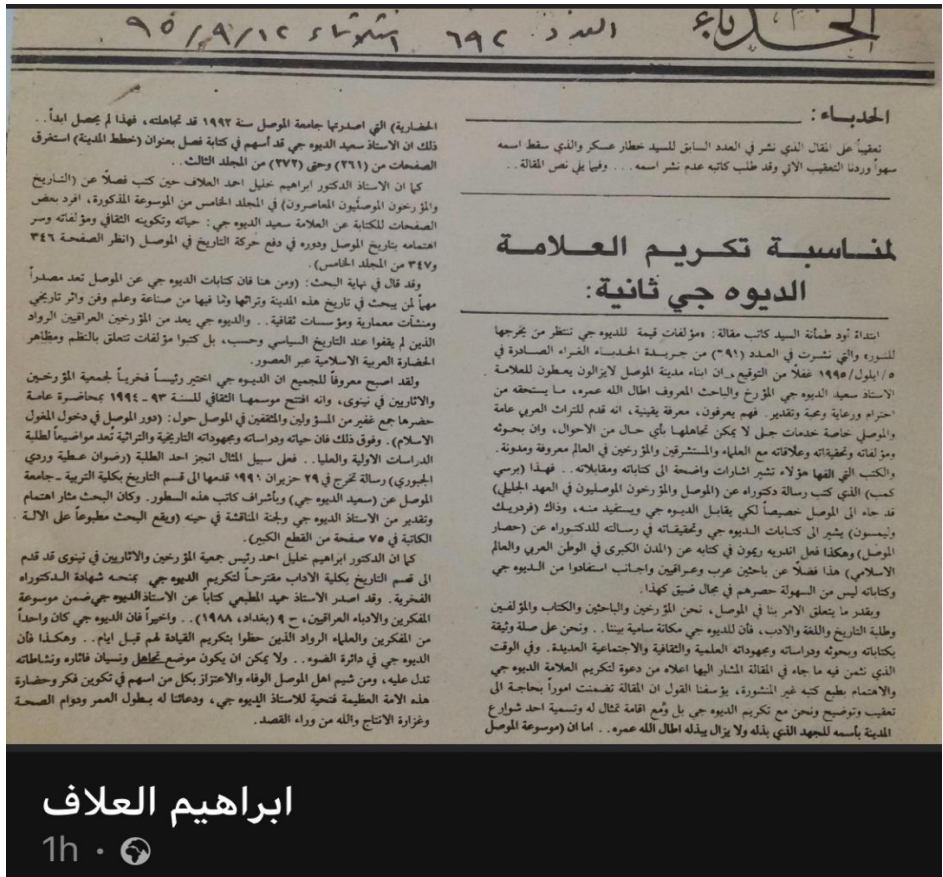 الحدباء
العدد ٦٩٢ الثلاثاء ٩٥/٩/١٢
الحدباء:
تعقيباً على المقال الذي نشر في العدد السابق للسيد خطار عسكر والذي سقط اسمه
سهواً وردنا التعقيب الآتي وقد طلب كاتبه عدم نشر اسمه... وفيما يلي نص المقالة..
لمناسبة تكريم العلامة
الديوه جي ثانية:
ابتداءً أود طمأنة السيد كاتب مقالة: ومؤلفات قيمة للديوه جي تنتظر من يخرجها
للنور» والتي نشرت في العدد (٦٩١) من جريدة الحدباء الغراء الصادرة في
٥/ايلول/١٩٩٥ غفلاً من التوقيع. ان ابناء مدينة الموصل لايزالون يعطون للعلامة
الاستاذ سعيد الديوه جي المؤرخ والباحث المعروف اطال الله عمره، ما يستحقه من
احترام ورعاية ومحبة وتقدير. فهم يعرفون، معرفة يقينية، انه قدم للتراث العربي عامة
والموصلي خاصة خدمات جلى لا يمكن تجاهلها بأي حال من الاحوال، وان بحوثه
ومؤلفاته وتحقيقاته وعلاقاته مع العلماء والمستشرقين والمؤرخين في العالم معروفة ومدونة.
والكتب التي الفها هؤلاء تشير اشارات واضحة الى كتاباته ومقابلاته.. فهذا (برسي
كمب) الذي كتب رسالة دكتوراه عن (الموصل والمؤرخون الموصليون في العهد الجليلي)
قد جاء الى الموصل خصيصاً لكي يقابل الديوه جي ويستفيد منه، وذاك (فردريك
وليمسون) يشير الى كتابات الديوه جي وتحقيقاته في رسالته للدكتوراه عن (حصار
الموصل) وهكذا فعل اندريه ريمون في كتابه عن (المدن الكبرى في الوطن العربي والعالم
الاسلامي) هذا فضلاً عن باحثين عرب وعراقيين واجانب استفادوا من الديوه جي
وكتاباته ليس من السهولة حصرهم في مجال ضيق كهذا.
وبقدر ما يتعلق الامر بنا في الموصل، نحن المؤرخين والباحثين والكتاب والمؤلفين
وطلبة التاريخ واللغة والادب، فأن للديوه جي مكانة سامية بيننا.. ونحن على صلة وثيقة
بكتاباته وبحوثه ودراساته ومجهوداته العلمية والثقافية والاجتماعية العديدة. وفي الوقت
الذي نثمن فيه ما جاء في المقالة المشار اليها اعلاه من دعوة لتكريم العلامة الديوه جي
والاهتمام بطبع كتبه غير المنشورة، يؤسفنا القول ان المقالة تضمنت اموراً بحاجة الى
تعقيب وتوضيح ونحن مع تكريم الديوه جي بل ومع اقامة تمثال له وتسمية احد شوارع
المدينة بأسمه للجهد الذي بذله ولا يزال يبذله اطال الله عمره.. اما ان (موسوعة الموصل
الحضارية) التي اصدرتها جامعة الموصل سنة ١٩٩٢ قد تجاهلته، فهذا لم يحصل ابداً..
ذلك ان الاستاذ سعيد الديوه جي قد أسهم في كتابة فصل بعنوان (خطط المدينة) استغرق
الصفحات من (٢٦١) وحتى (٢٧٢) من المجلد الثالث..
كما ان الاستاذ الدكتور ابراهيم خليل احمد العلاف حين كتب فصلاً عن (التاريخ
والمؤرخون الموصليون المعاصرون) في المجلد الخامس من الموسوعة المذكورة، افرد بعض
الصفحات للكتابة عن العلامة سعيد الديوه جي: حياته وتكوينه الثقافي ومؤلفاته وسر
اهتمامه بتاريخ الموصل ودوره في دفع حركة التاريخ في الموصل (انظر الصفحة ٣٤٦
و٣٤٧ من المجلد الخامس).
وقد قال في نهاية البحث: (ومن هنا فان كتابات الديوه جي عن الموصل تعد مصدراً
مهماً لمن يبحث في تاريخ هذه المدينة وتراثها وما فيها من صناعة وعلم وفن واثر تاريخي
ومنشآت معمارية ومؤسسات ثقافية.. والديوه جي يعد من المؤرخين العراقيين الرواد
الذين لم يقفوا عند التاريخ السياسي وحسب، بل كتبوا مؤلفات تتعلق بالنظم ومظاهر
الحضارة العربية الاسلامية عبر العصور.
ولقد اصبح معروفاً للجميع ان الديوه جي اختير رئيساً فخرياً لجمعية المؤرخين
والاثاريين في نينوى، وانه افتتح موسمها الثقافي للسنة ٩٣ - ١٩٩٤ بمحاضرة عامة
حضرها جمع غفير من المسؤولين والمثقفين في الموصل حول: (دور الموصل في دخول المغول
الاسلام). وفوق ذلك فان حياته ودراساته ومجهوداته التاريخية والتراثية تعد مواضيعاً لطلبة
الدراسات الاولية والعليا.. فعلى سبيل المثال انجز احد الطلبة (رضوان عطية وردي
الجبوري) رسالة تخرج في ٢٩ حزيران ١٩٩١ قدمها الى قسم التاريخ بكلية التربية - جامعة
الموصل عن (سعيد الديوه جي) وبأشراف كاتب هذه السطور. وكان البحث مثار اهتمام
وتقدير من الاستاذ الديوه جي ولجنة المناقشة في حينه (ويقع البحث مطبوعاً على الالة
الكاتبة في ٧٥ صفحة من القطع الكبير).
كما ان الدكتور ابراهيم خليل احمد رئيس جمعية المؤرخين والاثاريين في نينوى قد قدم
الى قسم التاريخ بكلية الاداب مقترحاً لتكريم الديوه جي بمنحه شهادة الدكتوراه
الفخرية. وقد اصدر الاستاذ حميد المطبعي كتاباً عن الاستاذ الديوه جي ضمن موسوعة
المفكرين والادباء العراقيين، ح ٩ (بغداد، ١٩٨٨).. واخيراً فان الديوه جي كان واحداً
من المفكرين والعلماء الرواد الذين حظوا بتكريم القيادة لهم قبل ايام.. وهكذا فأن
الديوه جي في دائرة الضوء.. ولا يمكن ان يكون موضع تجاهل ونسيان فاثاره ونشاطاته
تدل عليه، ومن شيم اهل الموصل الوفاء والاعتزاز بكل من اسهم في تكوين فكر وحضارة
هذه الامة العظيمة فتحية للاستاذ الديوه جي، ودعائنا له بطول العمر ودوام الصحة
وغزارة الانتاج والله من وراء القصد.
ابراهيم العلاف
1h